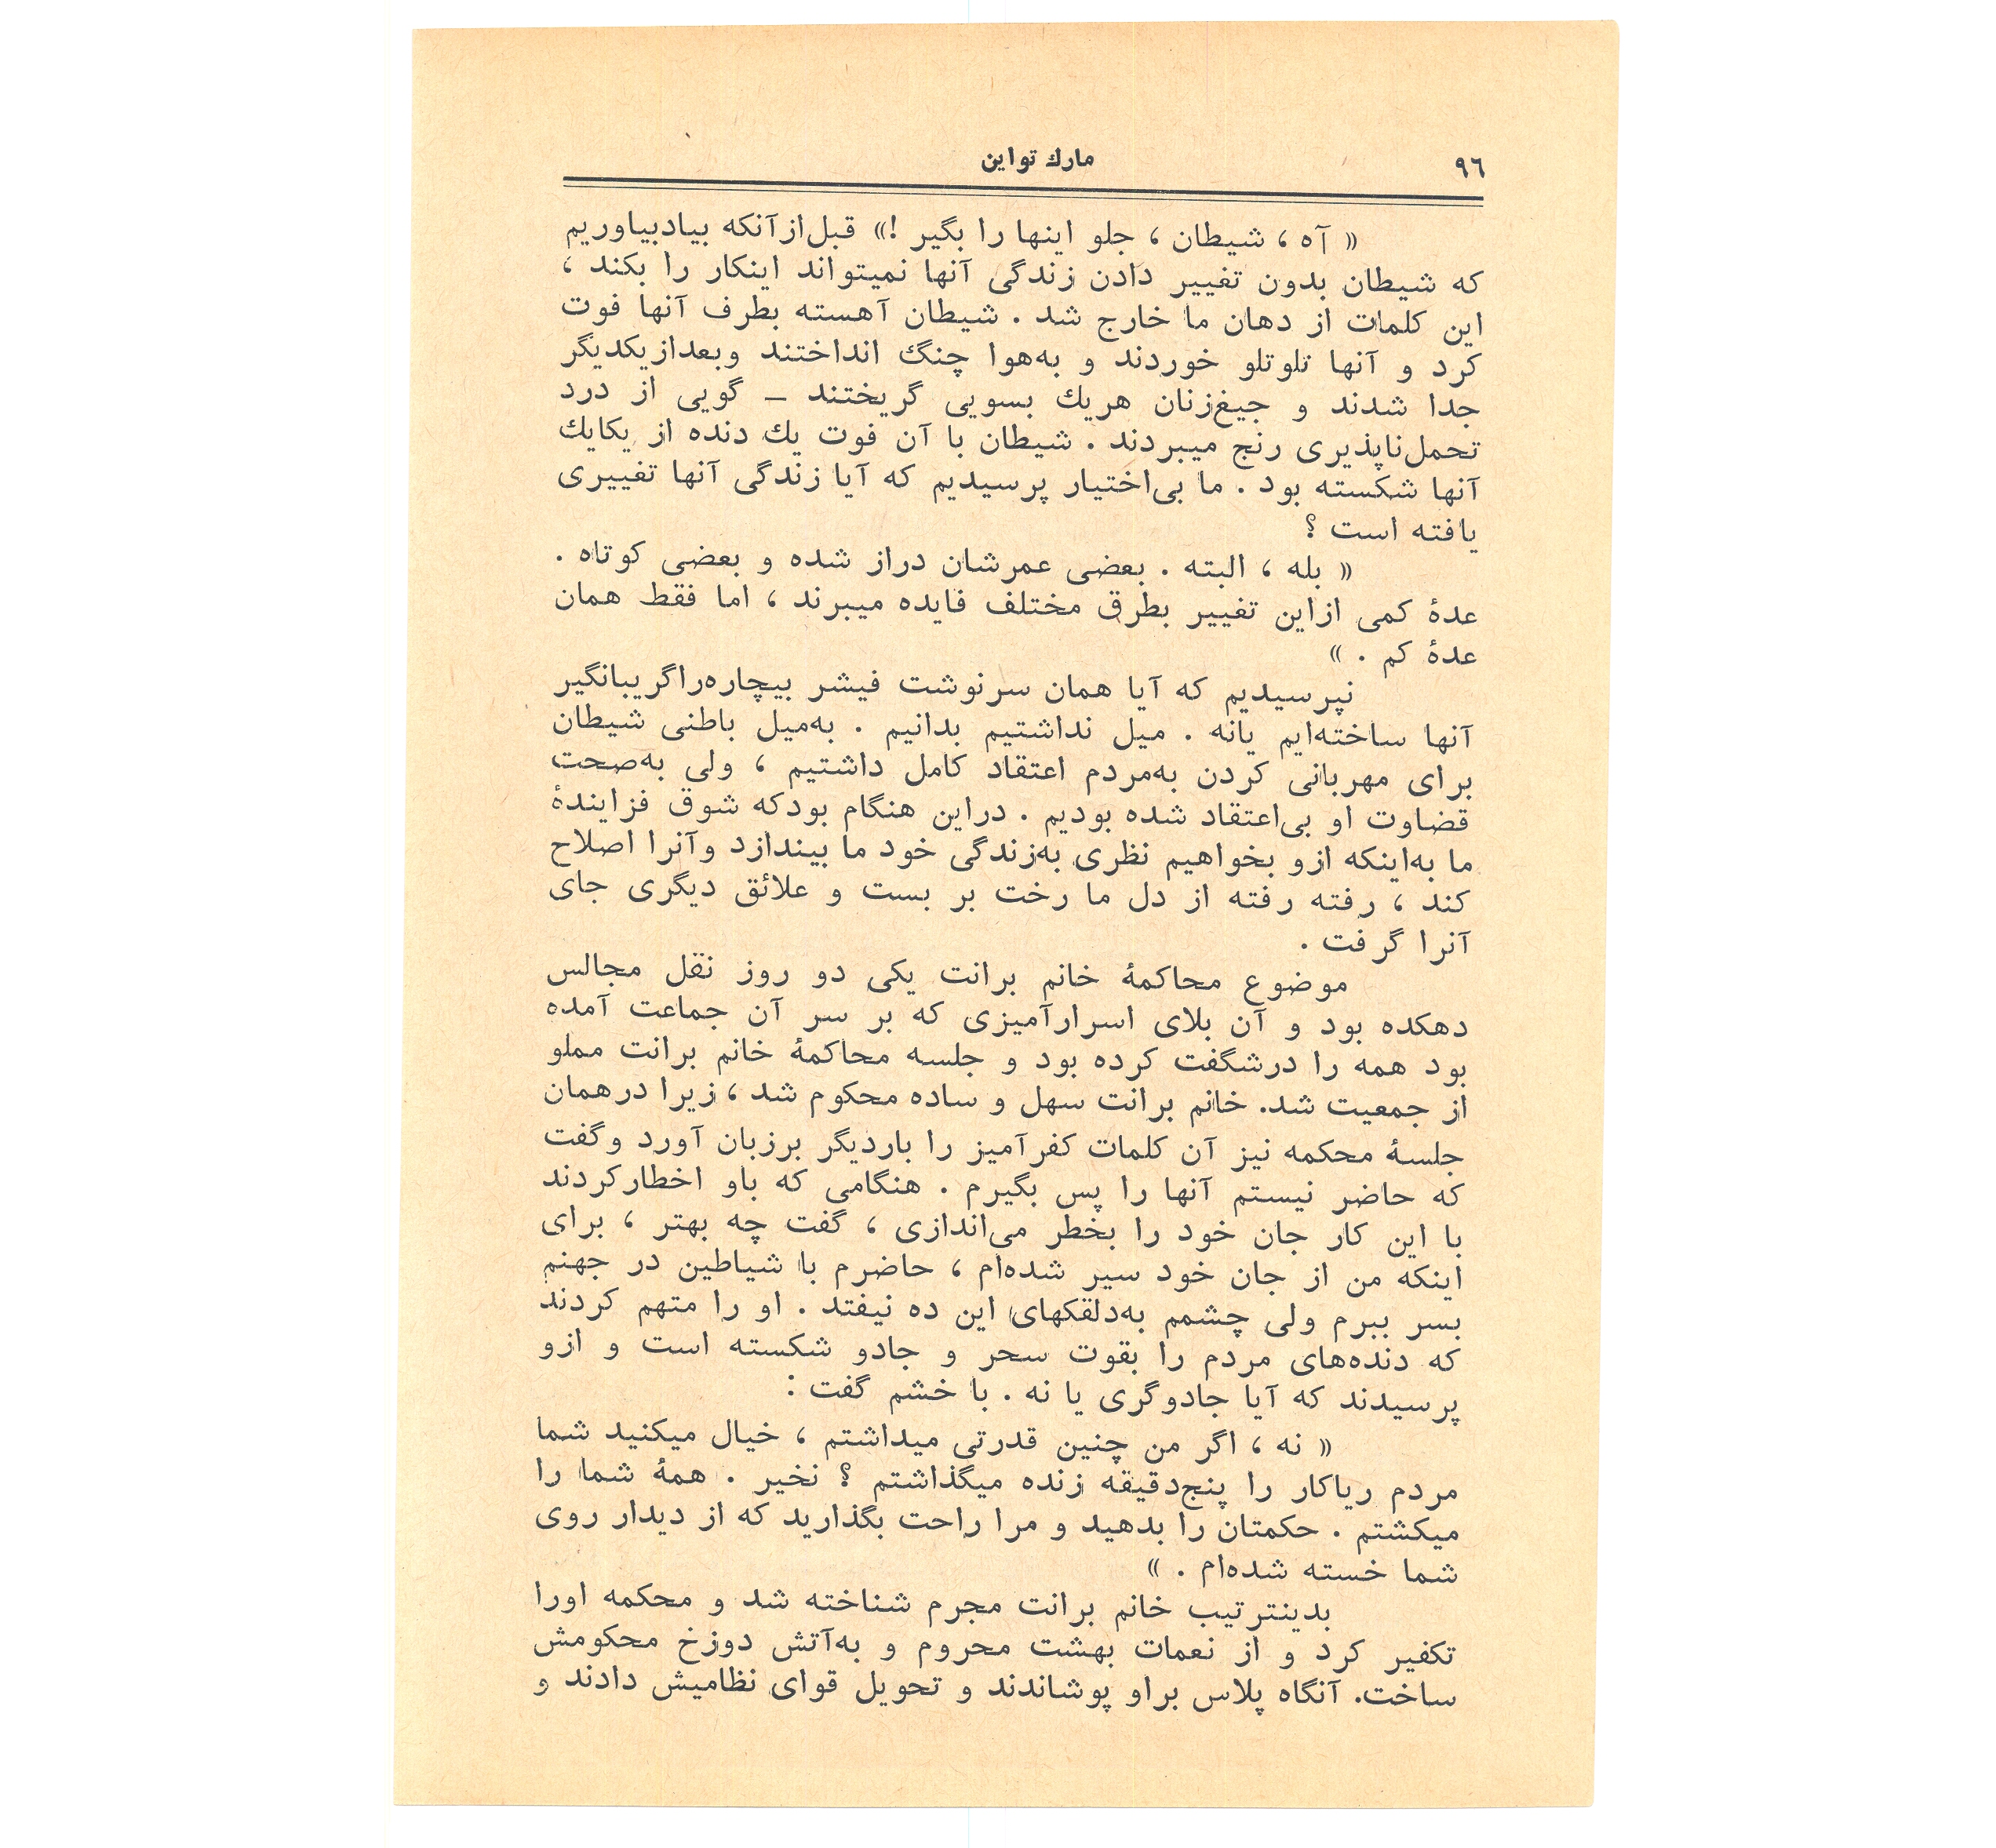 ۹۶
مارك تواین
« آه ، شیطان ، جلو اینها را بگیر !» قبل‌ازآنکه بیادبیاوریم
که شیطان بدون تغییر دادن زندگی آنها نمیتواند اینکار را بکند ،
این کلمات از دهان ما خارج شد . شیطان آهسته بطرف آنها فوت
کرد و آنها تلوتلو خوردند و به‌هوا چنگ انداختند وبعدازیکدیگر
جدا شدند و جیغ‌زنان هریك بسویی گریختند – گویی از درد
تحمل‌ناپذیری رنج میبردند . شیطان با آن فوت یك دنده از یکایك
آنها شکسته بود . ما بی‌اختیار پرسیدیم که آیا زندگی آنها تغییری
یافته است ؟
« بله ، البته . بعضی عمرشان دراز شده و بعضی کوتاه .
عدهٔ کمی ازاین تغییر بطرق مختلف فایده میبرند ، اما فقط همان
عدهٔ کم . »
نپرسیدیم که آیا همان سرنوشت فیشر بیچاره‌راگریبانگیر
آنها ساخته‌ایم یانه . میل نداشتیم بدانیم . به‌میل باطنی شیطان
برای مهربانی کردن به‌مردم اعتقاد کامل داشتیم ، ولی به‌صحت
قضاوت او بی‌اعتقاد شده بودیم . دراین هنگام بودکه شوق فزایندهٔ
ما به‌اینکه ازو بخواهیم نظری به‌زندگی خود ما بیندازد وآنرا اصلاح
کند ، رفته رفته از دل ما رخت بر بست و علائق دیگری جای
آنرا گرفت .
موضوع محاکمهٔ خانم برانت یکی دو روز نقل مجالس
دهکده بود و آن بلای اسرارآمیزی که بر سر آن جماعت آمده
بود همه را درشگفت کرده بود و جلسه محاکمهٔ خانم برانت مملو
از جمعیت شد. خانم برانت سهل و ساده محکوم شد ، زیرا درهمان
جلسهٔ محکمه نیز آن کلمات کفرآمیز را باردیگر برزبان آورد وگفت
که حاضر نیستم آنها را پس بگیرم . هنگامی که باو اخطارکردند
با این کار جان خود را بخطر می‌اندازی ، گفت چه بهتر ، برای
اینکه من از جان خود سیر شده‌ام ، حاضرم با شیاطین در جهنم
بسر ببرم ولی چشمم به‌دلقکهای این ده نیفتد . او را متهم کردند
که دنده‌های مردم را بقوت سحر و جادو شکسته است و ازو
پرسیدند که آیا جادوگری یا نه . با خشم گفت :
« نه ، اگر من چنین قدرتی میداشتم ، خیال میکنید شما
مردم ریاکار را پنج‌دقیقه زنده میگذاشتم ؟ نخیر . همهٔ شما را
میکشتم . حکمتان را بدهید و مرا راحت بگذارید که از دیدار روی
شما خسته شده‌ام . »
بدینترتیب خانم برانت مجرم شناخته شد و محکمه اورا
تکفیر کرد و از نعمات بهشت محروم و به‌آتش دوزخ محکومش
ساخت. آنگاه پلاس براو پوشاندند و تحویل قوای نظامیش دادند و